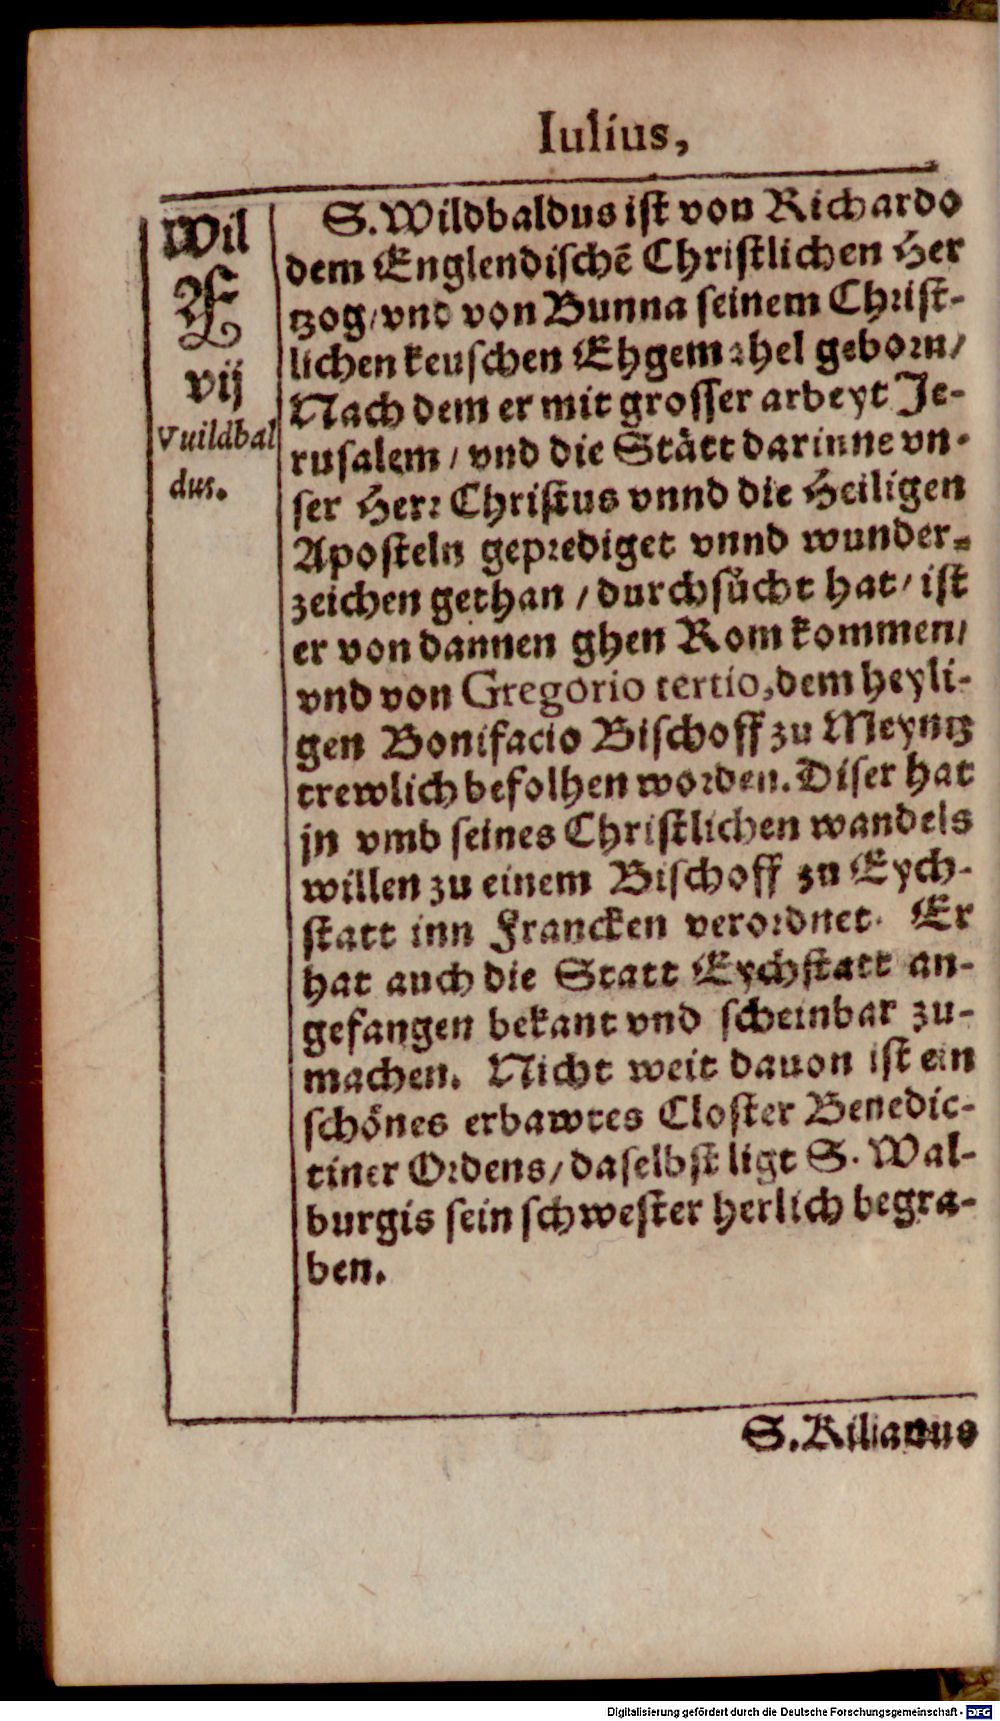 Iulius,
Wil
F
vij
Vuildbal
dus.
S. Wildbaldus ist von Richardo
dem Englendischē Christlichen Her
tzog/vnd von Bunna seinem Christ-
lichen keuschen Ehgemahel geborn/
Nach dem er mit grosser arbeyt Je-
rusalem/vnd die Stätt darinne vn-
ser Herr Christus vnnd die Heiligen
Aposteln geprediget vnnd wunder-
zeichen gethan/durchsůcht hat/ist
er von dannen ghen Rom kommen/
vnd von Gregorio tertio, dem heyli-
gen Bonifacio Bischoff zu Meyntz
trewlich befolhen worden. Diser hat
jn vmb seines Christlichen wandels
willen zu einem Bischoff zu Eych-
statt inn Francken verordnet. Er
hat auch die Statt Eychstatt an-
gefangen bekant vnd scheinbar zu-
machen. Nicht weit dauon ist ein
schönes erbawtes Closter Benedic-
tiner Ordens/daselbst ligt S. Wal-
burgis sein schwester herlich begra-
ben.
S. Kilianus
Digitalisierung gefördert durch die Deutsche Forschungsgemeinschaft - DFG